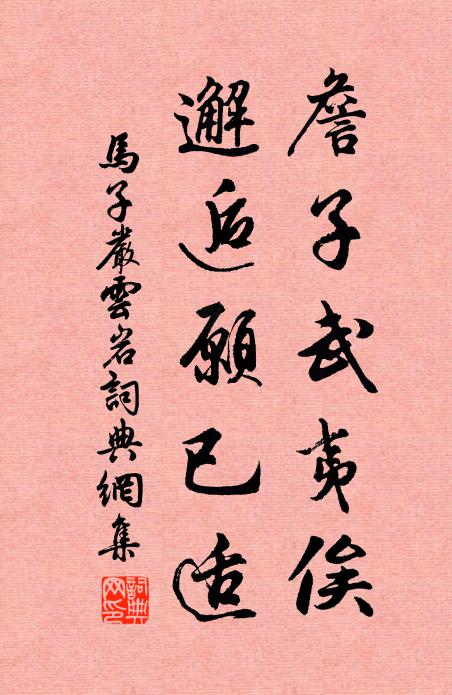 詹子武夷俟
邂逅願已适
馬子嚴雲岩詞典網集
詞典网印